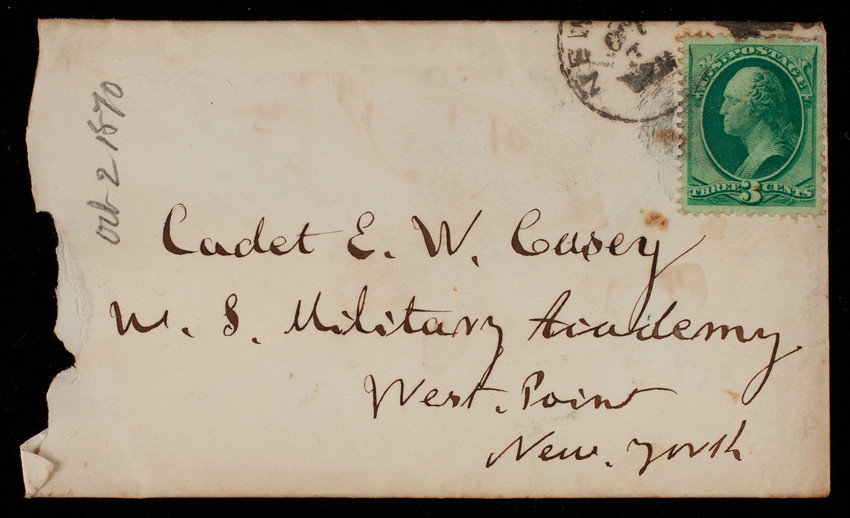 Oct 2 1870
NEW
OCT
U.S. POSTAGE
THREE 3 CENTS
Cadet E. W. Casey
U. S. Military Academy
West. Point
New. York